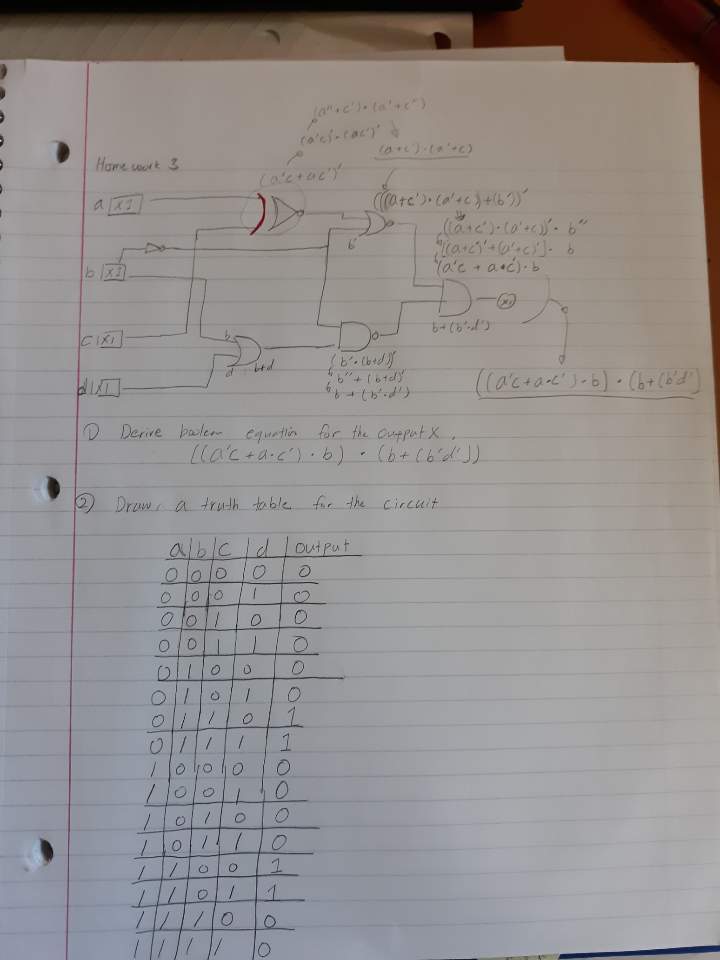 (a''+c')•(a'+c'')
(a'c)'•(ac')'
(a+c')•(a'+c)
Homework 3
(a'c+ac')'
a X1
(((a+c')•(a'+c))+(b'))'
((a+c')•(a'+c))'• b''
b'
[(a+c')'+(a'+c)']• b
b X1
(a'c + a•c')•b
X1
b+(b'•d')
c X1
b
d b+d
(b'•(b+d))'
d 1
b''+(b+d)'
b+(b'•d')
((a'c+a•c')•b)•(b+(b'd')
1) Derive boolean equation for the output X.
((a'c+a•c')•b) • (b+(b'd'))
2) Draw a truth table for the circuit
a b c d output
0 0 0 0 0
0 0 0 1 0
0 0 1 0 0
0 0 1 1 0
0 1 0 0 0
0 1 0 1 0
0 1 1 0 1
0 1 1 1 1
1 0 0 0 0
1 0 0 1 0
1 0 1 0 0
1 0 1 1 0
1 1 0 0 1
1 1 0 1 1
1 1 1 0 0
1 1 1 1 0